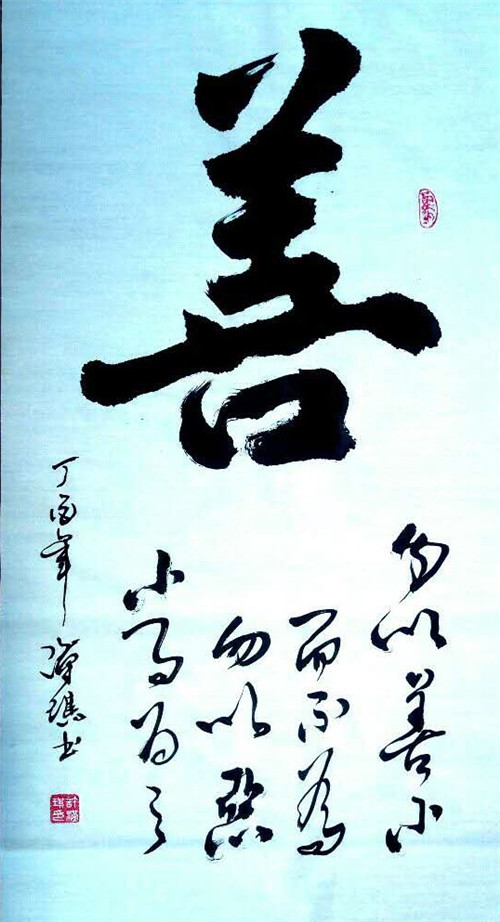 善
勿以善小
而不為
勿以惡
小而为之
丁酉年 书